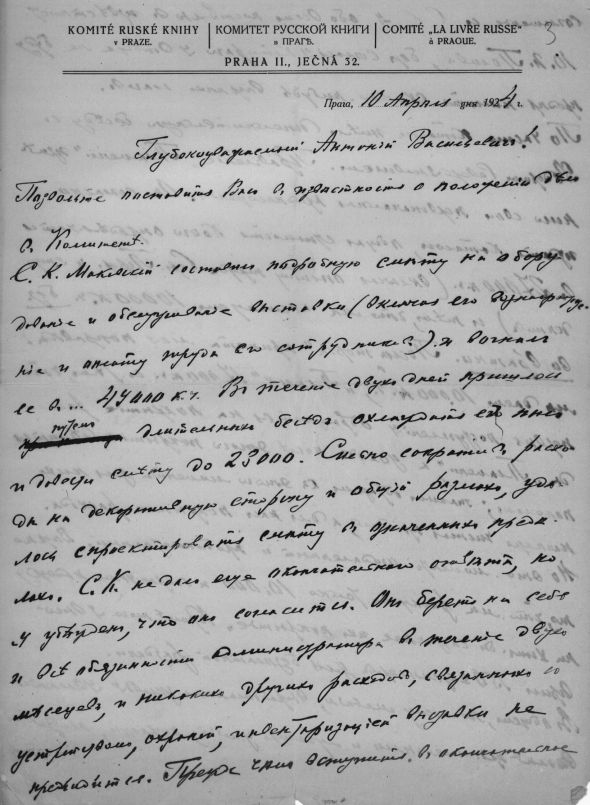 3
KOMITÉ RUSKÉ KNIHY
V PRAZE.
КОМИТЕТ РУССКОЙ КНИГИ
В ПРАГѢ.
COMITÉ „LA LIVRE RUSSE”
à PRAGUE.
PRAHA II., JEČNÁ 32.
Прага, 10 Апрѣля дня 1924 г.
Глубокоуважаемый Антоній Васильевичъ!
Позвольте поставить Васъ въ извѣстность о положеніи дѣлъ
въ Комитетѣ.
С. К. Маковскій составилъ подробную смѣту на обору-
дованіе и обслуживаніе выставки (включая его вознагражде-
ніе и оплату труда его сотрудниковъ). и вогналъ
ее въ... 49000 кч. Въ теченіе двухъ дней пришлось
путемъ длительныхъ бесѣдъ охлаждать его пылъ
и довести смѣту до 23000. Сильно сокративъ расхо-
ды на декоративную сторону и общій размахъ, уда-
лось спроектировать смѣту въ означенныхъ предѣ-
лахъ. С. К. не далъ еще окончательнаго отвѣта, но
я убѣжденъ, что онъ согласится. Онъ беретъ на себя
и всѣ обязанности администратора въ теченіе двухъ
мѣсяцевъ, и никакихъ другихъ расходовъ, связанныхъ со
устройствомъ, охраной, инвентаризаціей выставки не
предвидится. Прежде чѣмъ вступить въ окончательное